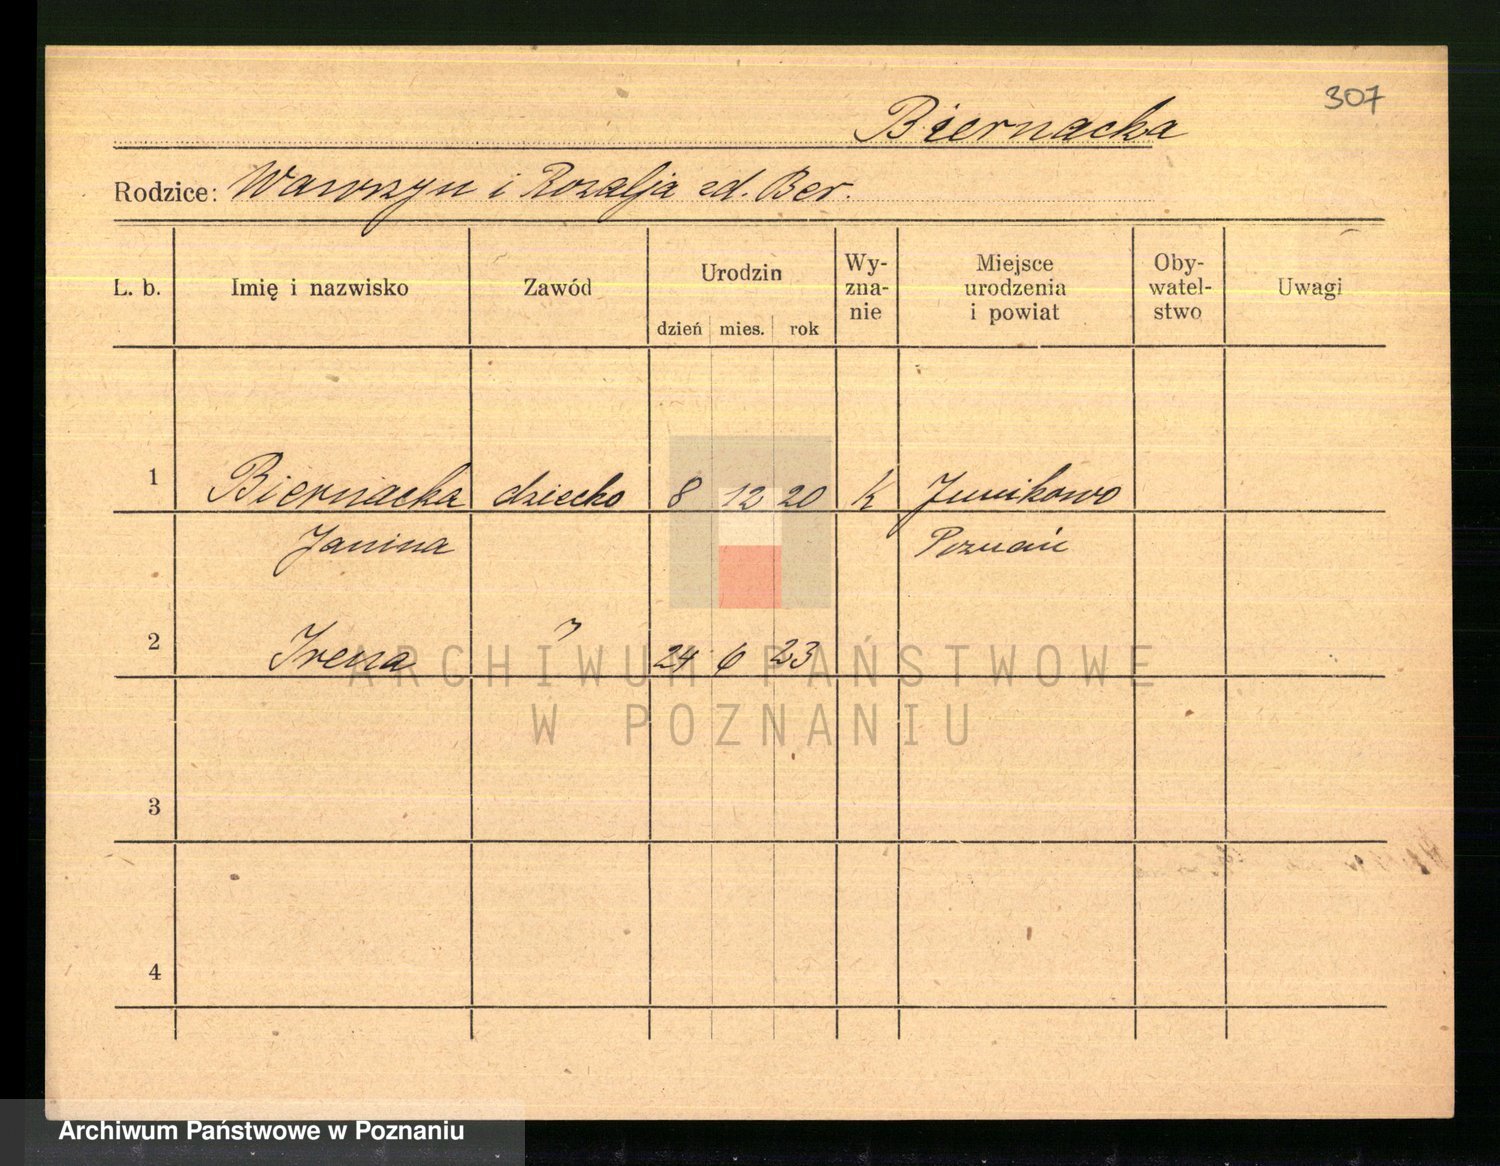 307
Biernacka
Rodzice: Wawrzyn i Rozalja zd. Ber.
L. b. Imię i nazwisko Zawód Urodzin Wy- Miejsce Oby- Uwagi
zna- urodzenia watel-
nie i powiat stwo
dzień mies. rok
1 Biernacka dziecko 8 12 20 k Junikowo
Janina Poznań
2 Irena " 24 6 23
ARCHIWUM PAŃSTWOWE
W POZNANIU
3
4
Archiwum Państwowe w Poznaniu